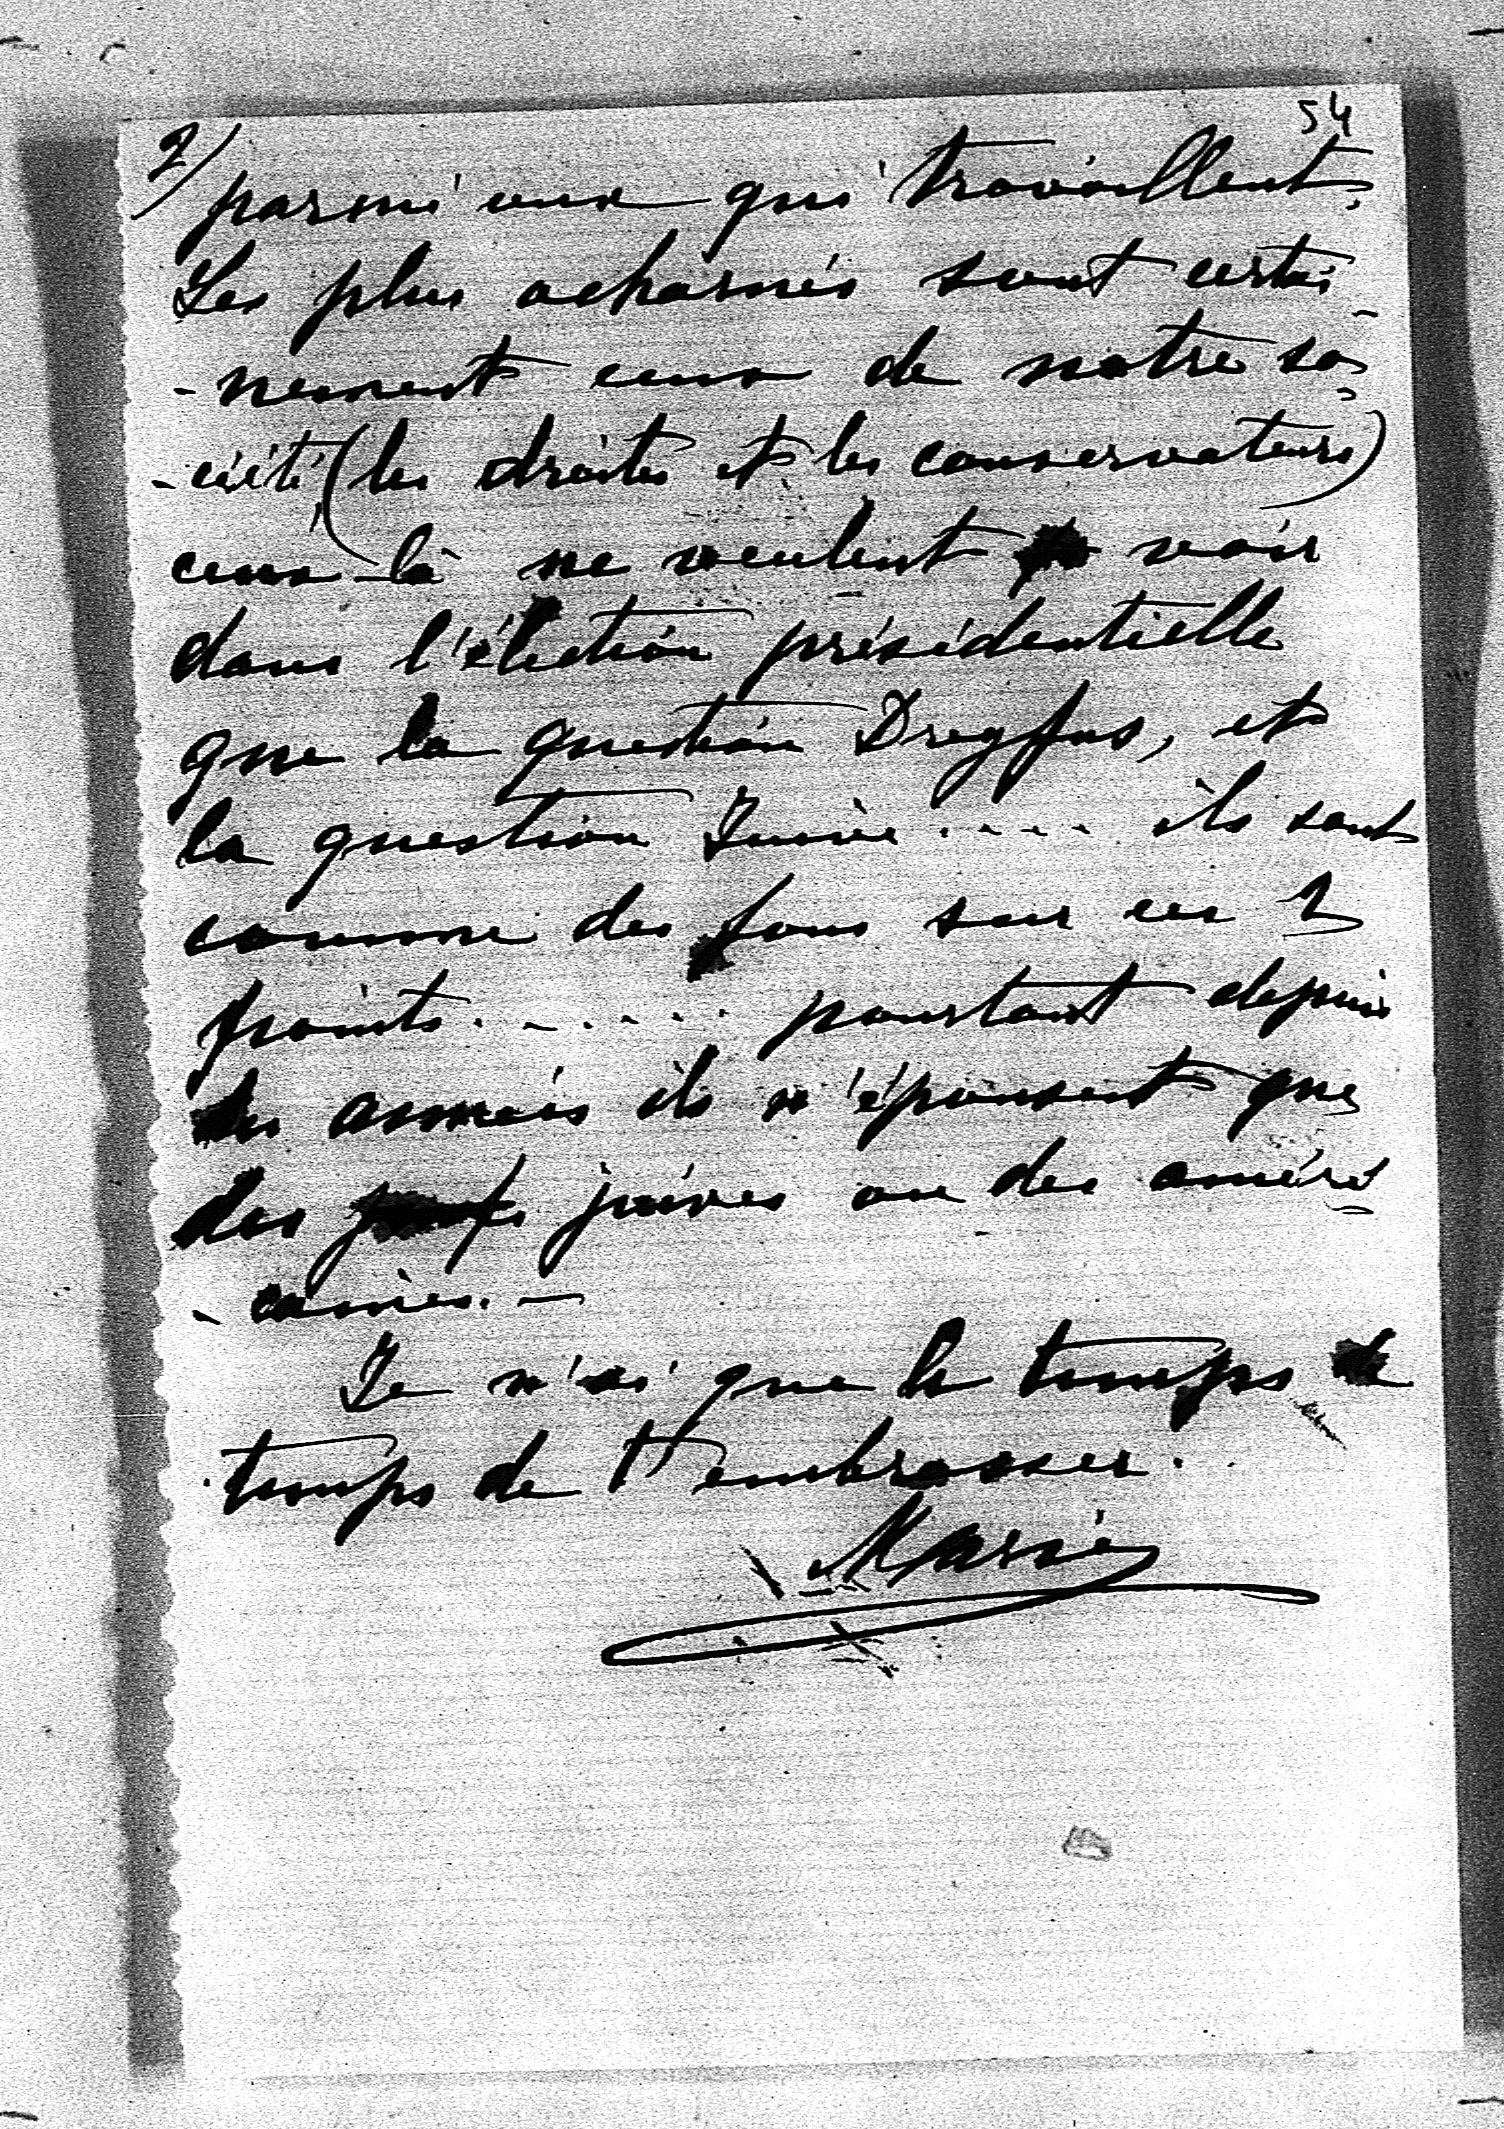 54
2/
parmi eux qui travaillent,
Les plus acharnés sont certai
- nement ceux de notre so
- ciété (les droites et les conservateurs)
ceux-là ne veulent voir
dans l'élection présidentielle
que la question Dreyfus, et
la question Juive ..... ils sont
comme des fous sur ces 2
points ....... pourtant depuis
des années ils n'épousent que
des juives ou des améri
- caines. —
Je n'ai que le temps de
temps de t'embrasser.
Marie